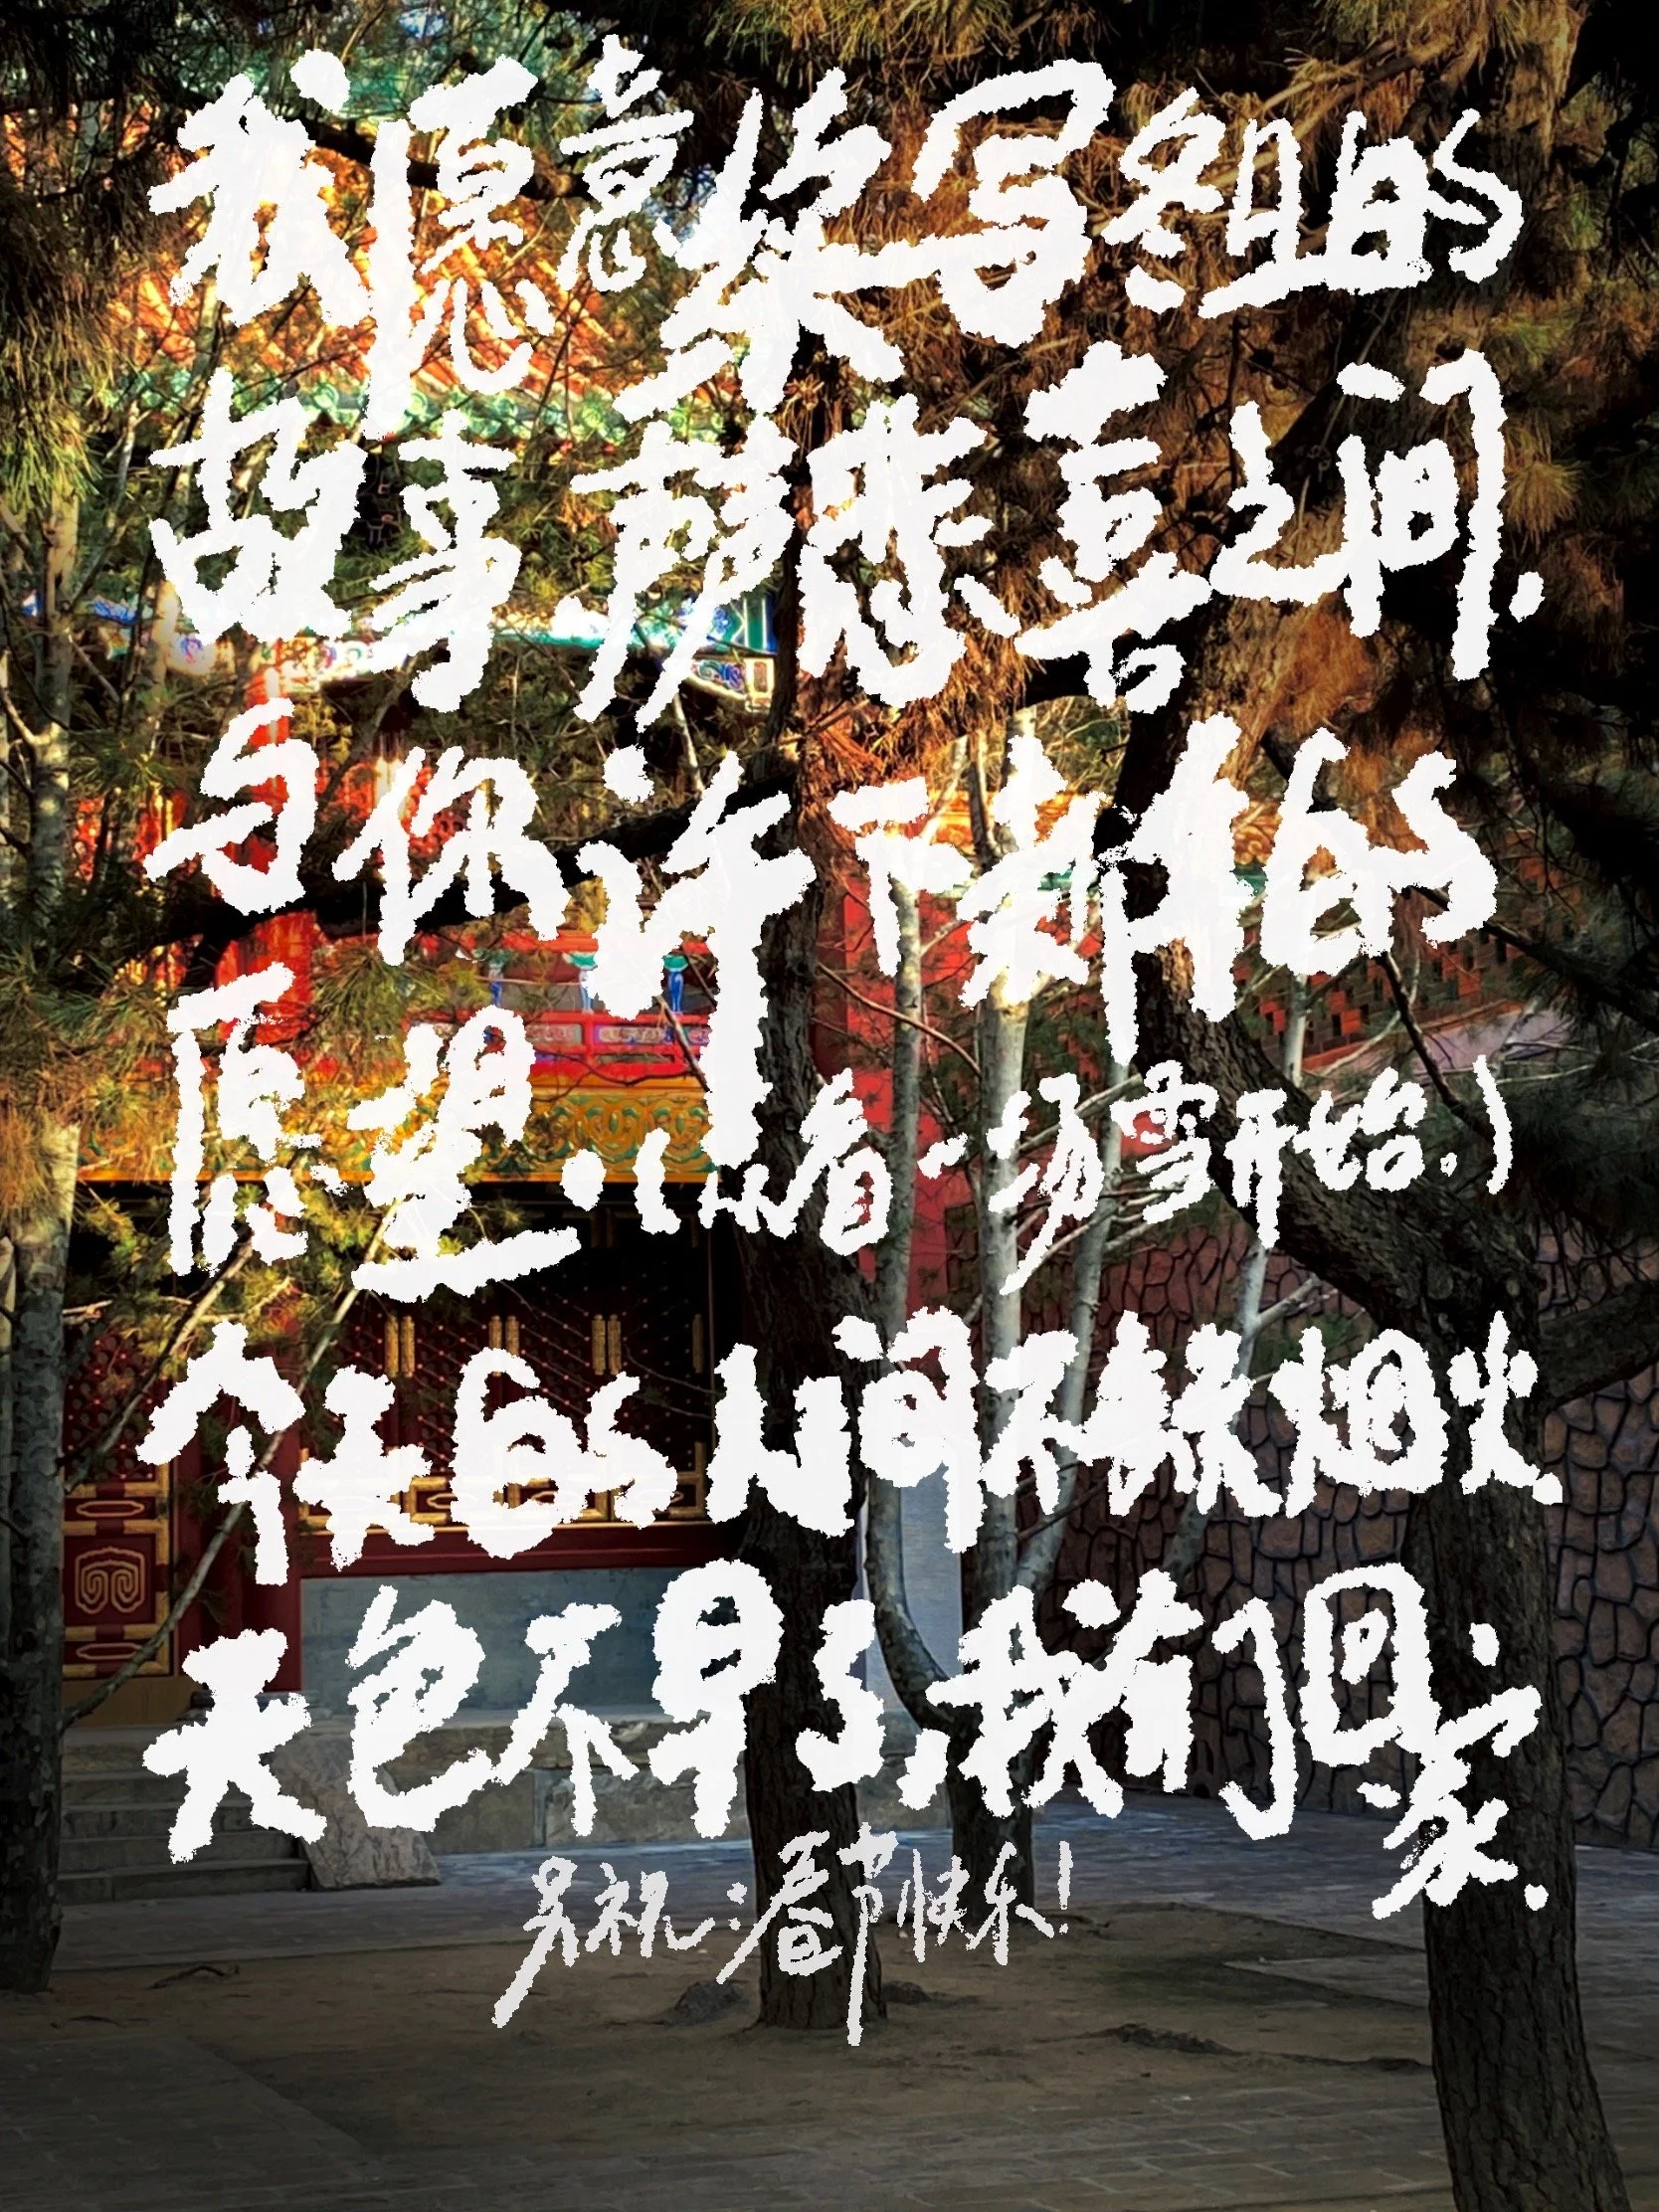 我愿意续写冬日的
故事,萨悲喜之间.
与你许下崭新的
愿望.(从看一场雪开始.)
今天的人间不缺烟火.
天色不早了,我有了回家.
另祝:春节快乐!